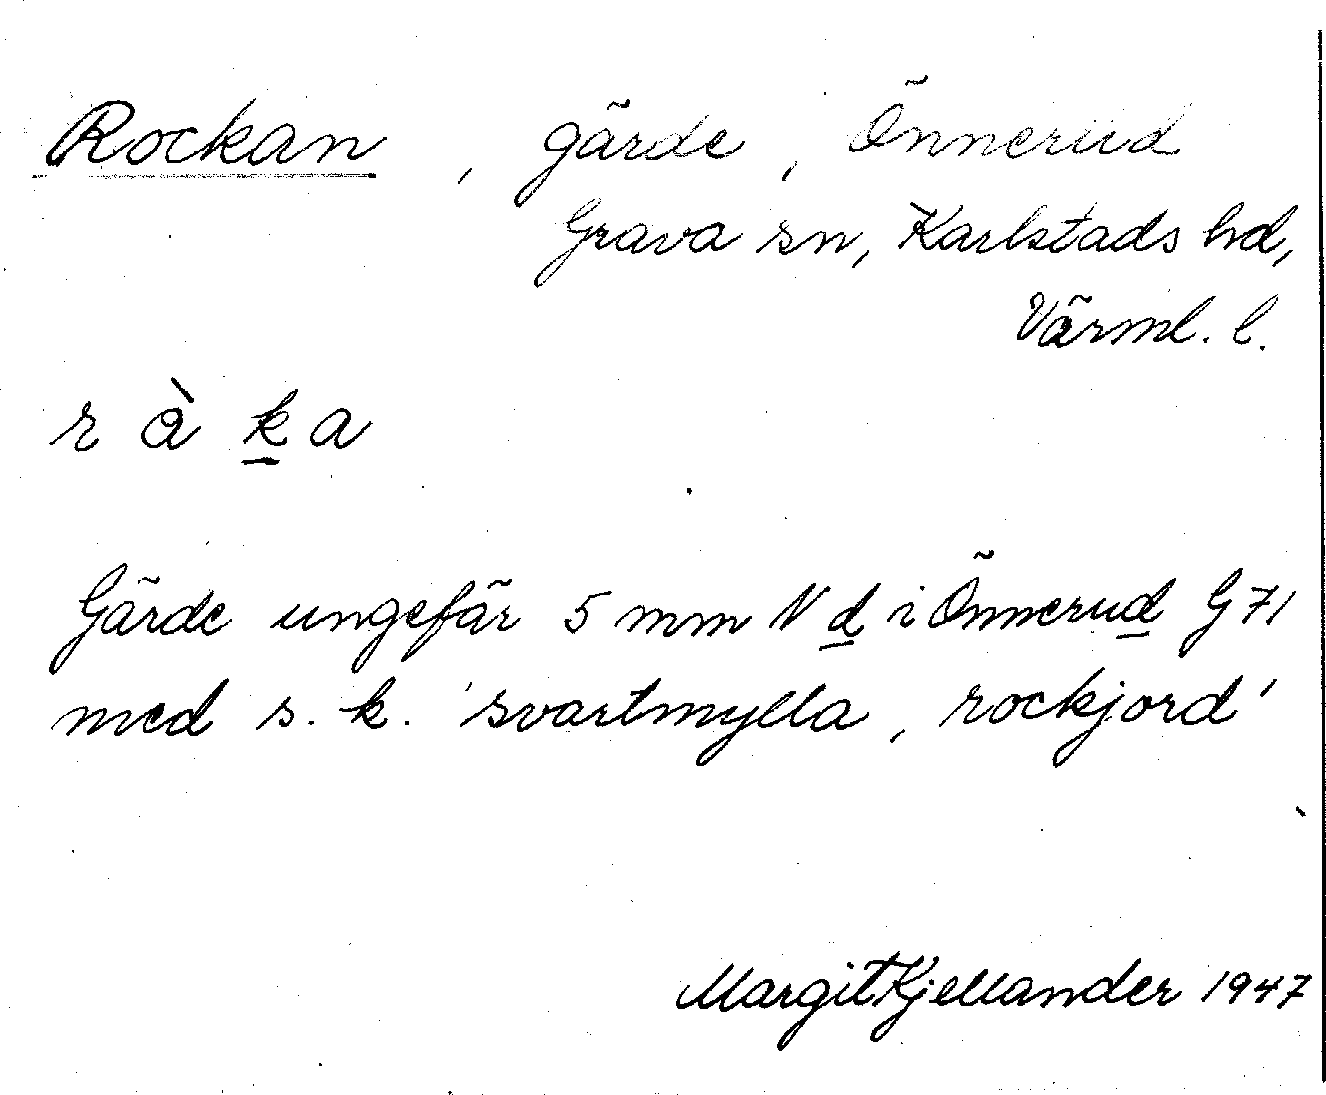 Rockan, gärde, Önnerud
Grava sn, Karlstads hd,
Värml. l.
r å̀ k a
Gärde ungefär 5 mm N d i Önnerud G 71
med s. k. 'svartmylla, rockjord'
Margit Kjellander 1947